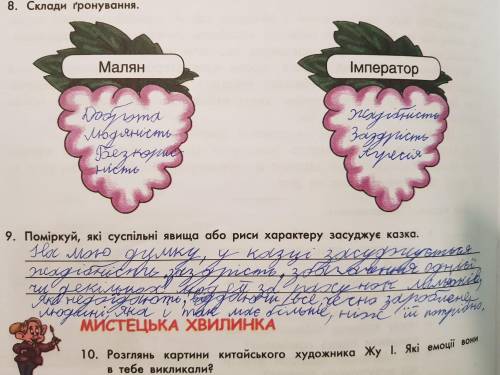 8. Склади ґронування.
Малян
Імператор
Доброта
людяність
Безкорис
ність
Жадібність
Заздрість
Агресія
9. Поміркуй, які суспільні явища або риси характеру засуджує казка.
На мою думку, у казці засуджується
жадібність, заздрість, однієї
чи декількох людей за рахунок
які недоїдають, віддають все, чесно зароблене
людині яка і так має більше, ніж їй потрібно.
МИСТЕЦЬКА ХВИЛИНКА
10. Розглянь картини китайського художника Жу І. Які емоції вони
в тебе викликали?